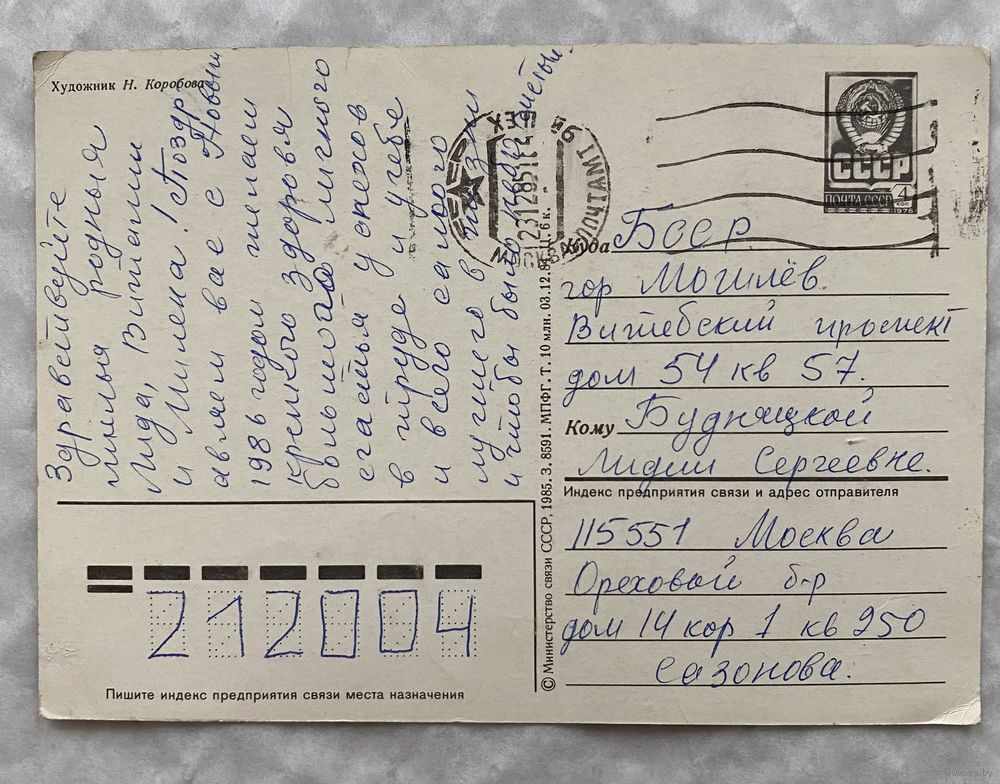 Художник Н. Коробова
Здравствуйте
милыя родныя
Лида, Виталий
и Милена! Поздр
авляем вас с Новым
1986 годом желаем
крепкого здоровья
большого личного
счастья успехов
в труде и учебе
и всего самого
лучшего в жизни
и чтобы было мирное
СССР
ПОЧТА СССР
4 коп
1976
МОСКВА ПОЧТАМТ
231285
Куда БССР
гор Могилёв.
Витебский проспект
дом 54 кв 57.
Кому Будняцкой
Лидии Сергеевне.
Индекс предприятия связи и адрес отправителя
115551 Москва
Ореховый б-р
дом 14 кор 1 кв 250
Сазонова.
© Министерство связи СССР, 1985. З. 8591. МПФГ. Т. 10 млн. 03.12.84. Ц. 6 к.
212004
Пишите индекс предприятия связи места назначения
www.ay.by